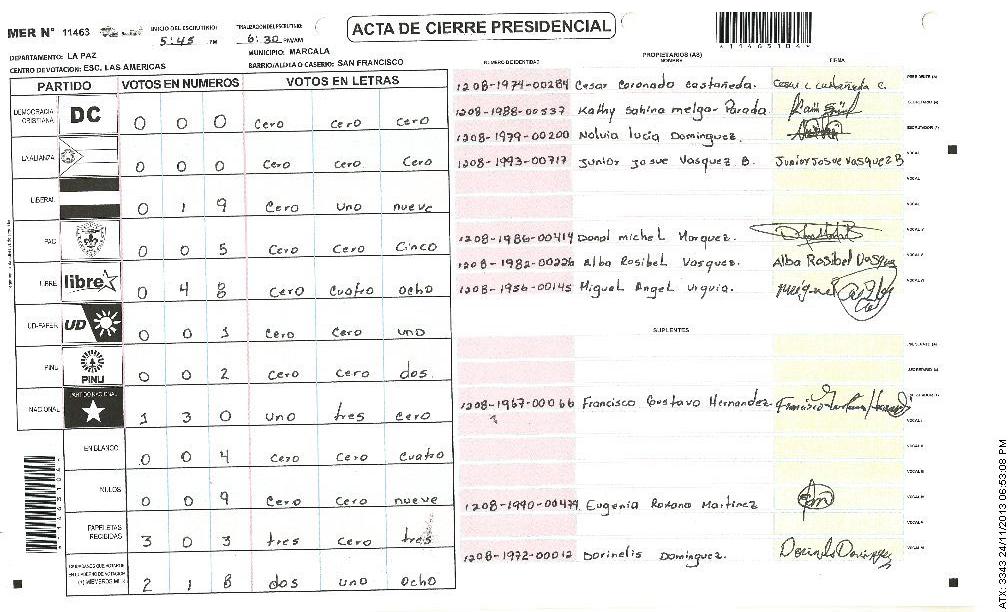 MER N° 11463
INICIO DEL ESCRUTINIO: 5:45 PM
FINALIZACION DEL ESCRUTINIO: 6:30 PM/AM
ACTA DE CIERRE PRESIDENCIAL
DEPARTAMENTO: LA PAZ
MUNICIPIO: MARCALA
CENTRO DE VOTACION: ESC. LAS AMERICAS
BARRIO/ALDEA O CASERIO: SAN FRANCISCO
PARTIDO VOTOS EN NUMEROS VOTOS EN LETRAS
DEMOCRACIA CRISTIANA DC 0 0 0 Cero cero cero
LA ALIANZA 0 0 0 Cero cero Cero
LIBERAL 0 1 9 Cero Uno nueve
PAC 0 0 5 Cero Cero Cinco
LIBRE libre 0 4 8 Cero Cuatro ocho
UD-FAPER UD 0 0 1 Cero Cero uno
PINU PINU 0 0 2 Cero cero dos
NACIONAL PARTIDO NACIONAL 1 3 0 uno tres cero
EN BLANCO 0 0 4 Cero cero cuatro
NULOS 0 0 9 Cero cero nueve
PAPELETAS RECIBIDAS 3 0 3 tres cero tres
2 1 8 dos uno ocho
PROPIETARIOS (AS)
NUMERO DE IDENTIDAD NOMBRE FIRMA
1208-1974-00284 Cesar Coronado Castañeda.
1208-1988-00537 Kathy Sabina melgar Parada
1208-1979-00200 Nolvia lucia Dominguez.
1208-1993-00717 Junior Josue Vasquez B. Junior Josue Vasquez B
1208-1986-00414 Donal michel Marquez.
1208-1982-00226 Alba Rosibel Vasquez. Alba Rosibel Vasquez
1208-1956-00145 Miguel Angel Urquia.
SUPLENTES
1208-1967-00066 Francisco Gustavo Hernandez
1208-1990-00479 Eugenia Rosano Martinez
1208-1972-00012 Dorinelis Dominguez.
ATX: 3343 24/11/2013 06:53:08 PM